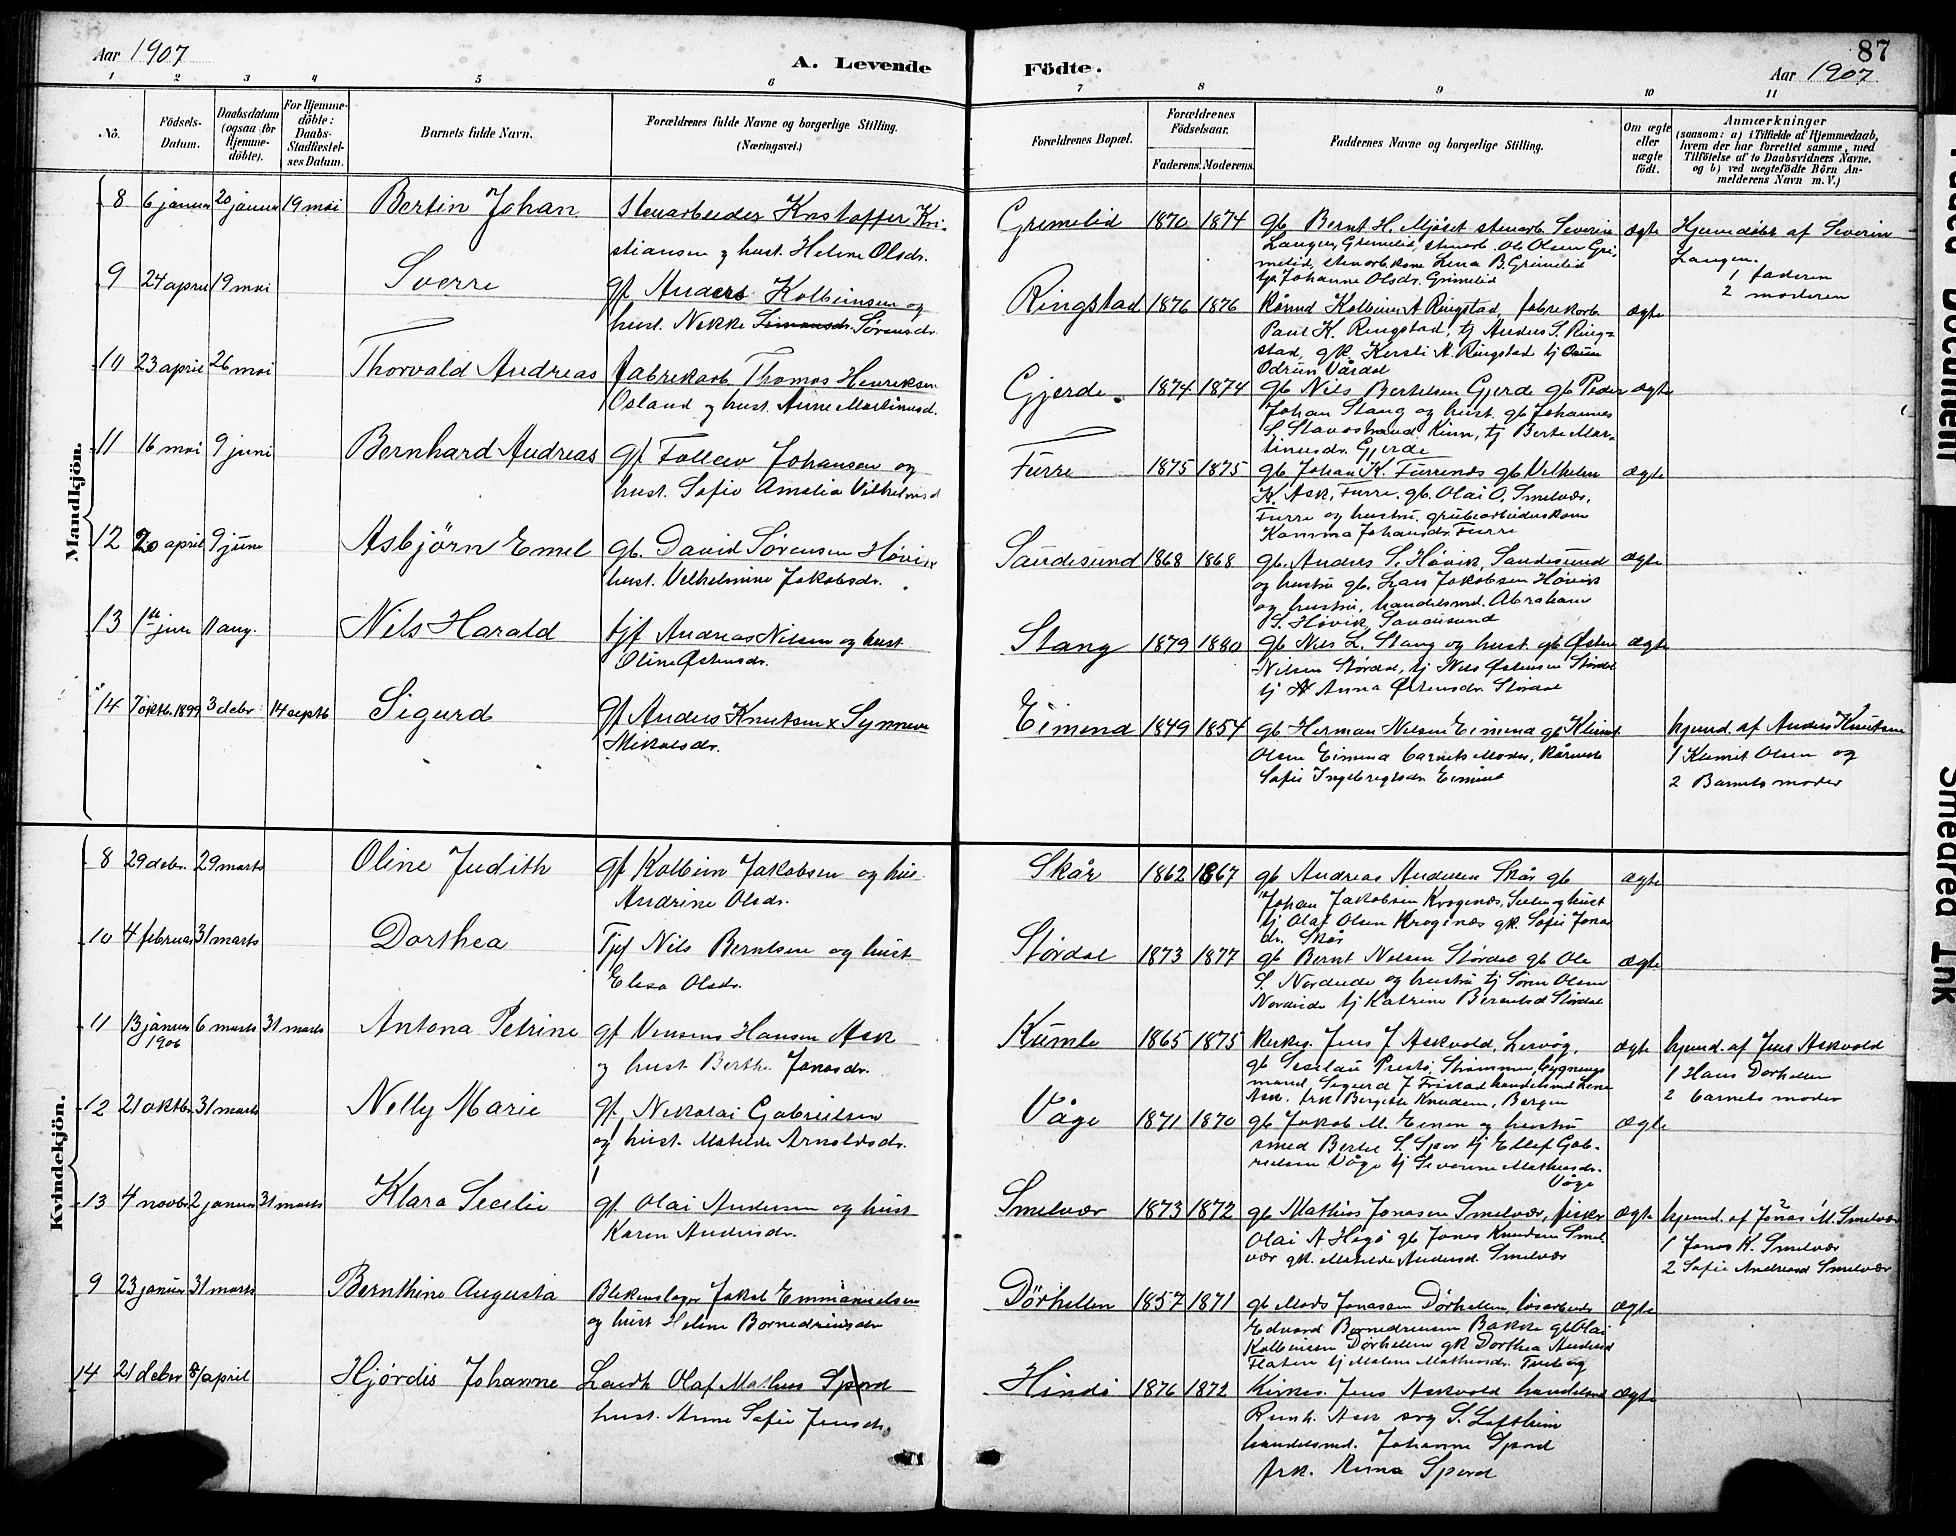 Aar 1907
A. Levende
Födte.
87
Aar 1907
1 2 3 4 5 6 7 8 9 10 11
No.
Födsels-
Datum.
Daabsdatum
(ogsaa for
Hjemme-
döbte).
For Hjemme-
döbte:
Daabs-
Stadfæstel-
ses Datum.
Barnets fulde Navn.
Forældrenes fulde Navne og borgerlige Stilling.
(Næringsvei.)
Forældrenes Bopæl.
Forældrenes
Födselsaar.
Faderens. Moderens.
Faddernes Navne og borgerlige Stilling.
Om ægte
eller
uægte
födt.
Anmærkninger
(saasom: a) i Tilfælde af Hjemmedaab,
hvem der har forrettet samme, med
Tilföielse af to Daabsvidners Navne,
og b) ved uægtefödte Börn An-
melderens Navn m. V.)
Mandkjön.
8 6 januar 20 januar 19 mai Bertin Johan Stenarbeider Kristoffer Kri-
stiansen og hust. Helene Olsdr.
Grimelid 1870 1874 gb Bernt H. Mjöset stenarb Severin
Langen, Grimelid, stenarb. Ole Olsen Gri-
melid, stenarb.kone Lena B. Grimelid
tj Johanne Olsdr. Grimelid
ægte
Hjemmedöbt af Severin
Langen.
1 faderen
2 moderen
9 24 april 19 mai Sverre gf Anders Kolbeinsen og
hust. Nikke Simonsdr. Sørensdr.
Ringstad 1876 1876 Kårmd Kolbein A Ringstad, fabrikarb
Paul K. Ringstad, tj Anders S. Ring-
stad, gk. Kersti A. Ringstad tj
Vårdal
ægte
10 23 april 26 mai Thorvald Andreas fabrikarb. Thomas Henriksen
Osland og hust. Anne Martinusd.
Gjerde. 1874 1874 gb Nils Bertelsen Gjerde gb Peder
Johan Stang og hust. gb Johannes
S. Stavøstrand Kinn, tj Berte Mar-
tinusdr. Gjerde
ægte
11 16 mai 9 juni Bernhard Andreas gf Johansen og
hust. Sofie Amalia Vilhelmsd
Furre 1875 1875 gb Johan K. Furrenes gb Vilhelm
K. Ask, Furre. gb. Olai O. Smelvær,
Furre og hustru, grubearbeiderskone
Johansdr. Furre
ægte
12 20 april 9 june Asbjörn Emel gb. David Sørensen Høvik
hust. Vilhelmine Jakobsdr.
Sandesund 1868 1868 gb. Anders S. Høvik, Sandesund
og hustru gb. Lars Jakobsen Høvik
og hustru, handelsmd. Abraham
S. Høvik, Sandesund
ægte
13 1ste juni 11 aug. Nils Harald tjf Andreas Nilsen og hust
Oline Østensdr.
Stang 1879 1880 gb Nils L. Stang og hust. gb Østen
Nilsen Stördal, tj Nils Østensen Stördal
tj Anna Østensdr. Stördal
ægte
14 7 oktb. 1899 3 debr 14 septb Sigurd gf Anders Knutsen x Synneve
Mikalsdr.
Eimend 1849 1854 gb Herman Nilsen Eimend gb Klemet
Olsen Eimend barnets Moder,
Sofie Ingebregtsdr Eimend
hjemd. af Anders Knutsen
1 Klemet Olsen og
2 Barnets moder
Kvindekjön.
8 29 debr. 29 marts Oline Judith gf Kolbein Jakobsen og hus
Andrine Olsdr.
Skår 1862 1867 gb Andreas Andersen Skår gb
Johan Jakobsen Krogenæs, og hust
tj Olai Olsen Krogenæs gk. Sofie Jona
dr. Skår
ægte
10 4 februar 31 marts Dorthea Tjf Nils Berntsen og hust
Elisa Olsdr.
Stördal 1873 1877 gb Bernt Nilsen Stördal gb Ole
S. Nordeide og hustru tj Sören Olsen
Nordeide tj Katrine Berentsd Stördal
ægte
11 13 januar 6 marts 31 marts Antona Petrine gf Hansen Ask
1906
og hust. Berthe Jonasdr.
Kumle 1865 1875 Kirkes. Jens J Askvold, Lervåg,
gb Prestö, Strömmen, bygnings
mand, Sigurd J Fristad handelsmd
Ask. frk Bergitte Knudsen, Bergen
ægte
hjemd. af Jens Askvold
1 Hans Dorhellen
2 barnets moder
12 21 oktbr 31 marts Nelly Marie gf. Nikolai Gabrielsen
og hust. Matilde Arnoldsdr.
Våge 1871 1870 gb Jakob M. Einen og hustru
smed Bertel S. Spor tj Ellef Gab-
rielsen Våge tj Severine Mathiasdr.
Våge
ægte
13 4 novbr 2 januar 31 marts Klara Secelie gf. Olai Andersen og hust
Karen Andersdr.
Smelvær 1873 1872 gb Mathias Jonasen Smelvær, fisker
Olai A Høgö gb Jonas Knudsen Smel
vær gk. Matilde Andersd. Smelvær
ægte
hjemd. af Jonas M. Smelvær
1 Jonas K. Smelvær
2 Sofie Andreasd Smelvær
9 23 januar 31 marts Bernthine Augusta Blikenslager Jakob Emmanuelsen
og hust Helene Bornedriusdr
Dörhellen 1857 1871 gb Mads Jonasen Dörhellen, lösarbeider
Edvard Bornedriusen Bakke gb Olai
Kolbeinsen Dörhellen gk Dorthea Andersd
Flaten tj Malene Mathiasdr.
ægte
14 21 debr 8/april Hjördis Johanne Landh Olaf Mathias Spord
hust. Anne Sofie Jensdr.
Hindö 1876 1872 Kirkes. Jens Askvold handelsmd
Ask S. Loftheim
handelsmd. Johanne Spord
frk. Anna Spord
ægte
Faded Document
Smeared Ink